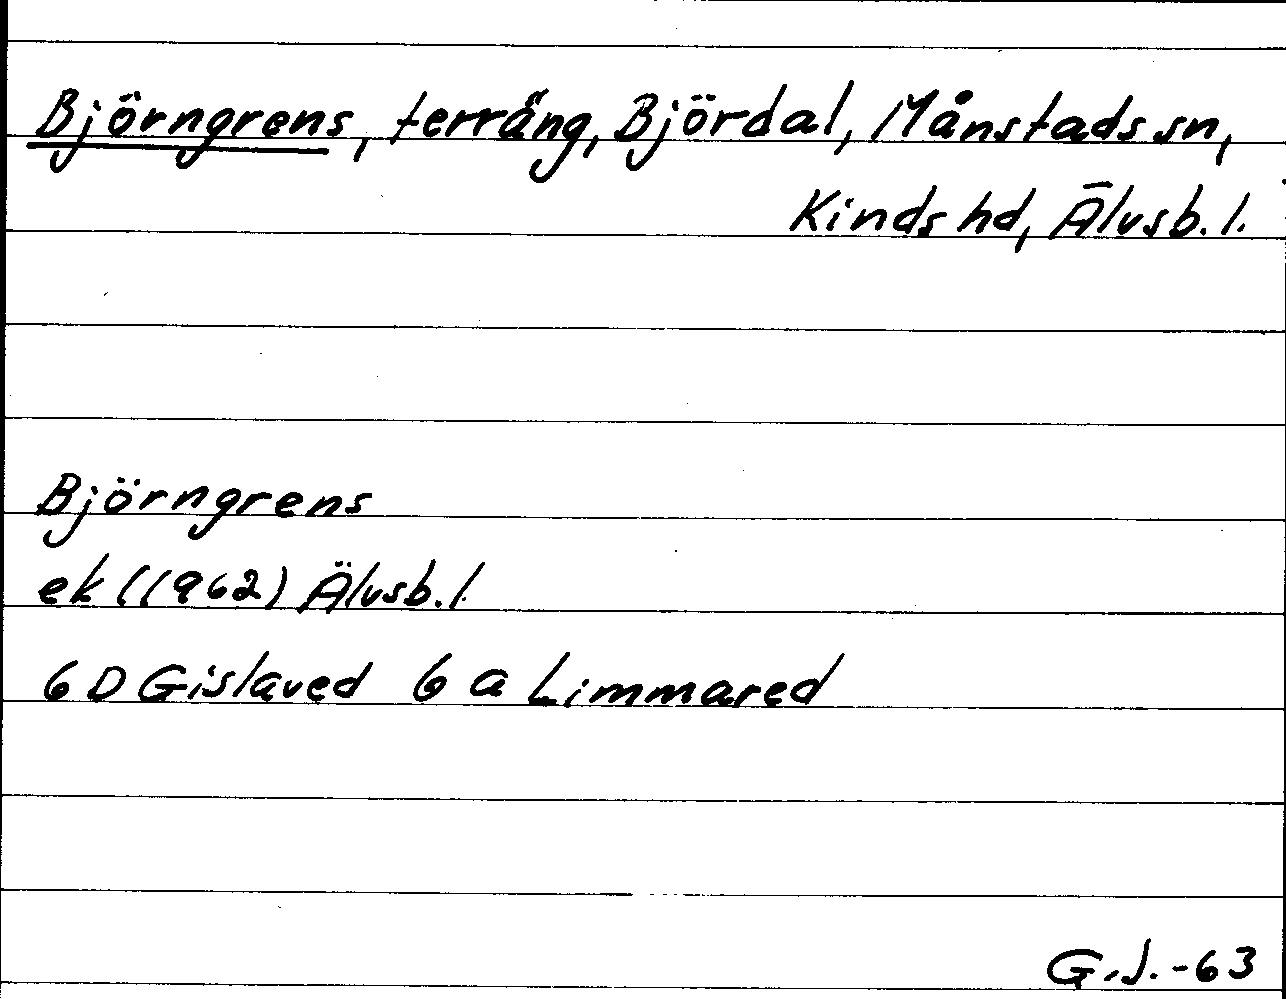 Björngrens, terräng, Björdal, Månstads sn,
Kinds hd, Älvsb. l.
Björngrens
ek (1962) Älvsb. l.
6 D Gislaved 6 a Limmared
G. J. -63